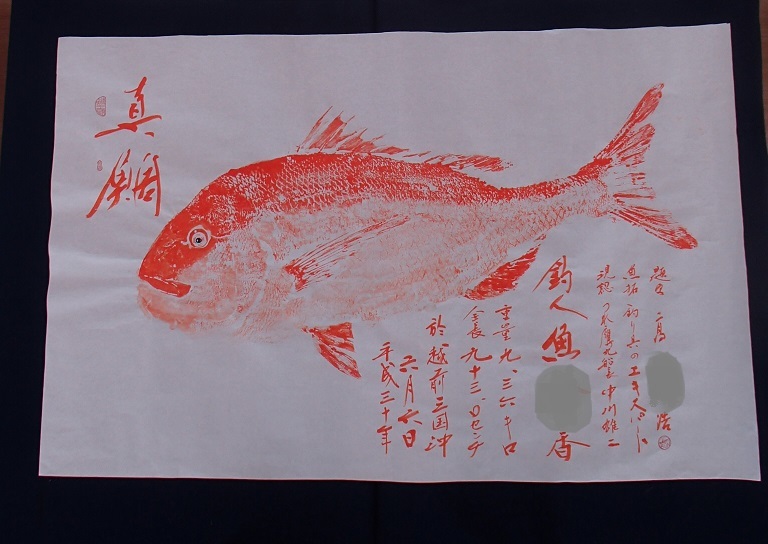 真鯛
魚拓 釣り具のエキスパート
現認 丸船長 中川雄二
釣人 魚 香
重量 九.三六キロ
全長 九十三.0センチ
於 越前三国沖
六月六日
平成三十年